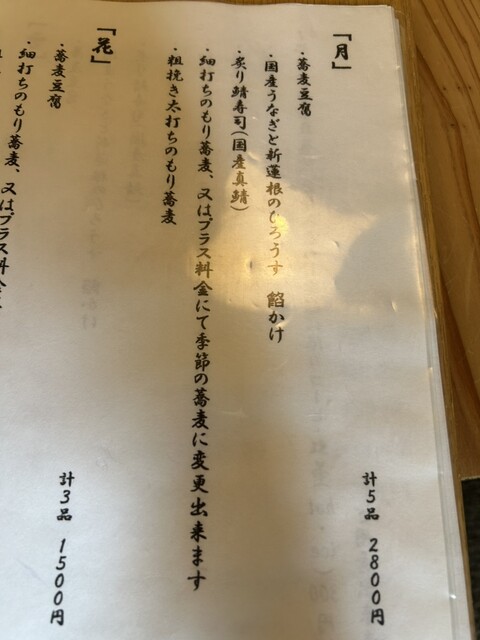 「月」
・蕎麦豆腐
・国産うなぎと新蓮根のひろうす 餡かけ
・炙り鯖寿司(国産真鯖)
・細打ちのもり蕎麦、又はプラス料金にて季節の蕎麦に変更出来ます
・粗挽き太打ちのもり蕎麦
計5品 2800円
「花」
・蕎麦豆腐
・細打ちのもり蕎麦、又はプラス料金に
計3品 1500円